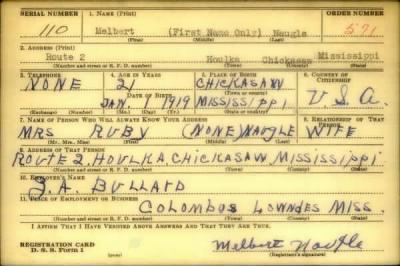 SERIAL NUMBER 1. NAME (Print) ORDER NUMBER
110 Melbert (First Name Only) Naugle 571
(First) (Middle) (Last)
2. ADDRESS (Print)
Route 2 Houlka Chickasaw Mississippi
(Number and street or R. F. D. number) (Town) (County) (State)
3. TELEPHONE 4. AGE IN YEARS 5. PLACE OF BIRTH 6. COUNTRY OF CITIZENSHIP
NONE 21 CHICKASAW
DATE OF BIRTH (Town or county)
JAN. 1 1919 MISSISSIPPI U.S.A.
(Exchange) (Number) (Mo.) (Day) (Yr.) (State or country)
7. NAME OF PERSON WHO WILL ALWAYS KNOW YOUR ADDRESS 8. RELATIONSHIP OF THAT PERSON
MRS RUBY (NONE) NAUGLE WIFE
(Mr., Mrs., Miss) (First) (Middle) (Last)
9. ADDRESS OF THAT PERSON
ROUTE 2, HOULKA, CHICKASAW, MISSISSIPPI
(Number and street or R. F. D. number) (Town) (County) (State)
10. EMPLOYER'S NAME
J. A. BULLARD
11. PLACE OF EMPLOYMENT OR BUSINESS
COLOMBUS LOWNDES MISS.
(Number and street or R. F. D. number) (Town) (County) (State)
I AFFIRM THAT I HAVE VERIFIED ABOVE ANSWERS AND THAT THEY ARE TRUE.
REGISTRATION CARD
D. S. S. Form 1 Melbert Naugle
(Registrant's signature)